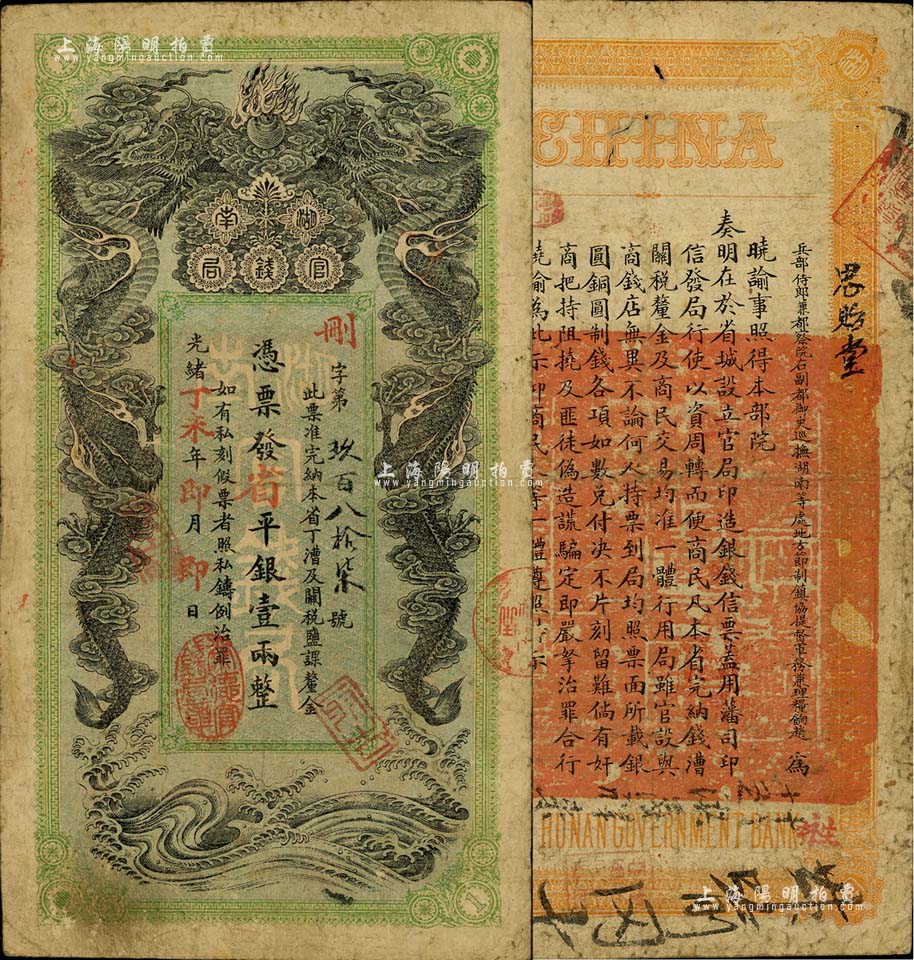 上海陽明拍賣
www.yangmingauction.com
湖南
官錢局
刪字第玖百八拾柒號
此票准完納本省丁漕及關税鹽課釐金
憑票發省平銀壹兩整
如有私刻假票者照私鑄例治罪
光緒丁未年印月印日
1
CHINA
思貽堂
兵部侍郎兼都察院右副都御史巡撫湖南等處地方節制鎮協提督軍務兼理糧餉趙 為
曉諭事照得本部院
奏明在於省城設立官局印造銀錢信票蓋用藩司印
信發局行使以資周轉而便商民凡本省完納錢漕
關税釐金及商民交易均准一體行用局雖官設與
商錢店無異不論何人持票到局均照票面所載銀
圓銅圓制錢各項如數兌付決不片刻留難倘有奸
商把持阻撓及匪徒偽造謊騙定即嚴拏治罪合行
曉諭為此示仰商民
HUNAN GOVERNMENT BANK
上海陽明拍賣
www.yangmingauction.com
上海陽明拍賣
www.yangmingauction.com